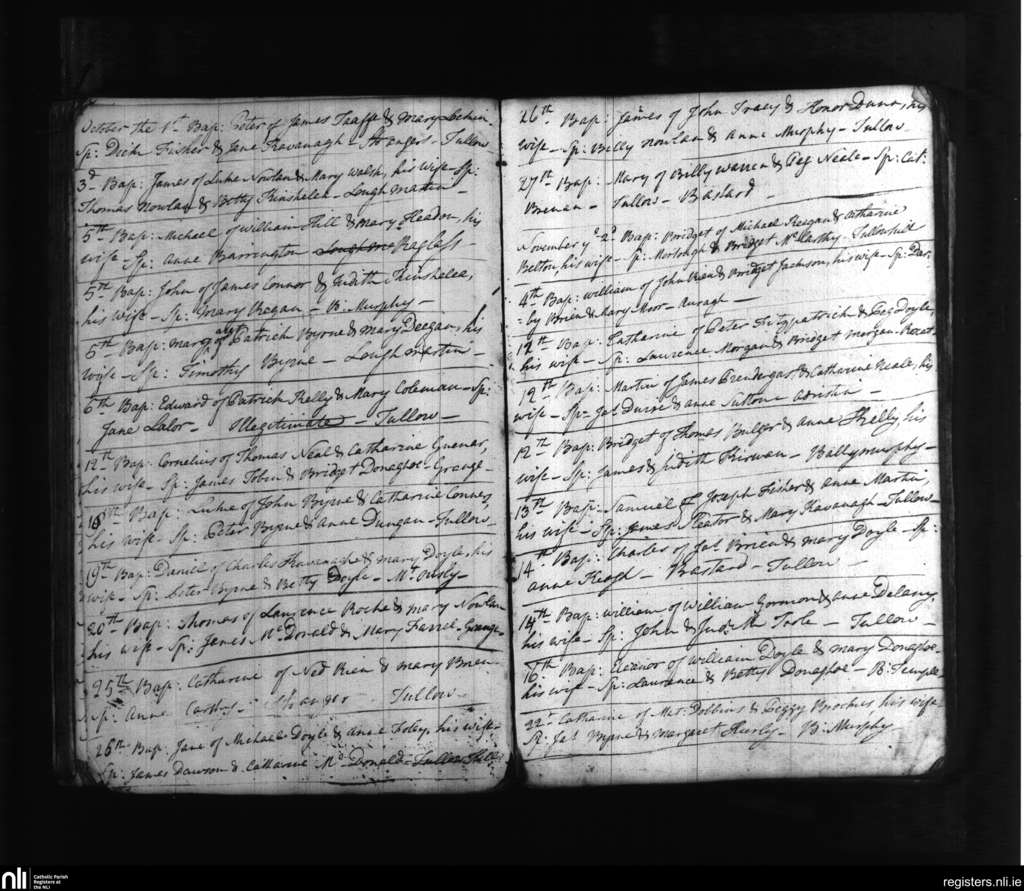 October the 1st Bap: Peter of James Taaffe & Mary
Sp: Dick Fisher & Jane Kavanagh - Strangers - Tullow
3d Bap: James of Luke Nowlan & Mary Walsh, his wife - Sp:
Thomas Nowlan & Betty Kinshelen - Loughmartin -
5th Bap: Michael of William Hill & Mary Headon, his
wife - Sp: Anne Barrington Ragless -
5th Bap: John of James Connor & Judith Kinshelea,
his wife - Sp: Mary Regan - B: Murphy -
6th Bap: Mary of Patrick Byrne & Mary Deegan, his
wife - Sp: Timothy Byrne - Loughmartin -
6th Bap: Edward of Patrick Kelly & Mary Coleman - Sp:
Jane Lalor - Illegitimate - Tullow -
12th Bap: Cornelius of Thomas Neal & Catharine
his wife - Sp: James Tobin & Bridget Donaghoe - Grange -
Bap: Luke of John Byrne & Catharine
his wife - Sp: Peter Byrne & Anne Dungan - Tullow -
19th Bap: Daniel of Charles Kavanagh & Mary Doyle, his
wife - Sp: Peter Byrne & Betty Doyle -
20th Bap: Thomas of Laurence Roche & Mary Nowlan
his wife - Sp: James McDonald & Mary Farrel - Grange -
25th Bap: Catharine of Ned Brien & Mary Brien
Sp: Anne Tullow -
26th Bap: Jane of Michael Doyle & Anne Foley, his wife
Sp: James Dawson & Catharine McDonald - Tullow
26th Bap: James of John Tracy & Honor Dunn, his
wife - Sp: Billy Nowlan & Anne Murphy - Tullow
27th Bap: Mary of Billy Warren & Peg Neele - Sp: Cat:
Brenan - Tullow - Bastard -
November ye 2d Bap: Bridget of Michael Keegan & Catharine
Belton, his wife - Sp: Mortough & Bridget McCarthy - Tullowhill
4th Bap: William of John & Bridget Jackson, his wife - Sp: Dar:
= by Brien & Mary Moor -
12th Bap: Catharine of Peter Fitzpatrick & Peg Doyle,
his wife - Sp: Laurence Morgan & Bridget Morgan -
12th Bap: Martin of James Prendergast & Catharine Neale, his
wife - Sp: Jas & Anne Suttone
12th Bap: Bridget of Thomas Bulger & Anne Kelly, his
wife - Sp: James & Judith Kirwan - Ballymurphy -
13th Bap: Samuel of Joseph Fisher & Anne Martin,
his wife - Sp: James Sleator & Mary Kavanagh - Tullow -
14th Bap: Charles of Jas Brien & Mary Doyle - Sp:
Anne Keogh - Bastard - Tullow -
14th Bap: William of William Gormon & Anne Delany,
his wife - Sp: John & Tullow -
16th Bap: Eleanor of William Doyle & Mary Donaghoe
his wife - Sp: Laurence & Betty Donaghoe - B: Temple
22d Catharine of Mat: Dobbins & Peggy his wife
Sp: Jas Byrne & Margaret - B: Murphy
nli
Catholic Parish
Registers at
the NLI
registers.nli.ie